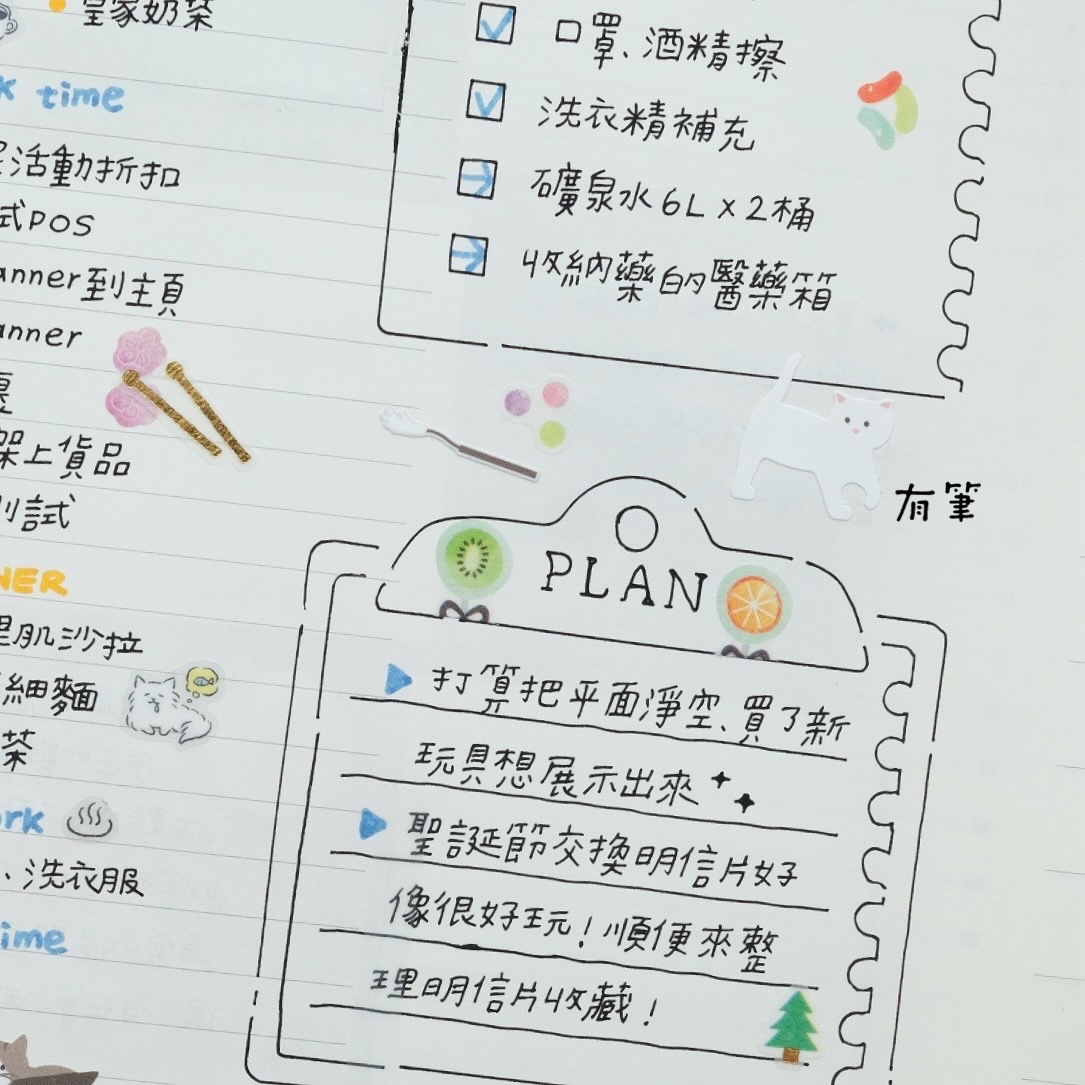 皇家奶茶
time
活動折扣
式POS
anner到主頁
anner
架上貨品
測試
NER
里肌沙拉
細麵
茶
rk
、洗衣服
ime
口罩、酒精擦
洗衣精補充
礦泉水6L×2桶
收納藥的醫藥箱
有筆
PLAN
打算把平面淨空、買了新
玩具想展示出來
聖誕節交換明信片好
像很好玩!順便來整
理明信片收藏!